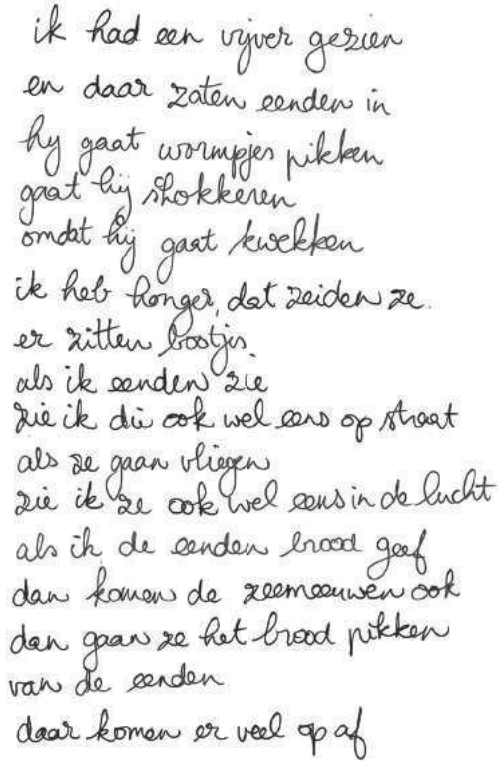 ik had een vijver gezien
en daar zaten eenden in
hij gaat wormpjes pikken
gaat hij shokkeren
omdat hij gaat kwekken
ik heb honger, dat zeiden ze.
er zitten bootjes
als ik eenden zie
zie ik die ook wel eens op straat
als ze gaan vliegen
zie ik ze ook wel eens in de lucht
als ik de eenden brood geef
dan komen de zeemeeuwen ook
dan gaan ze het brood pikken
van de eenden
daar komen er veel op af